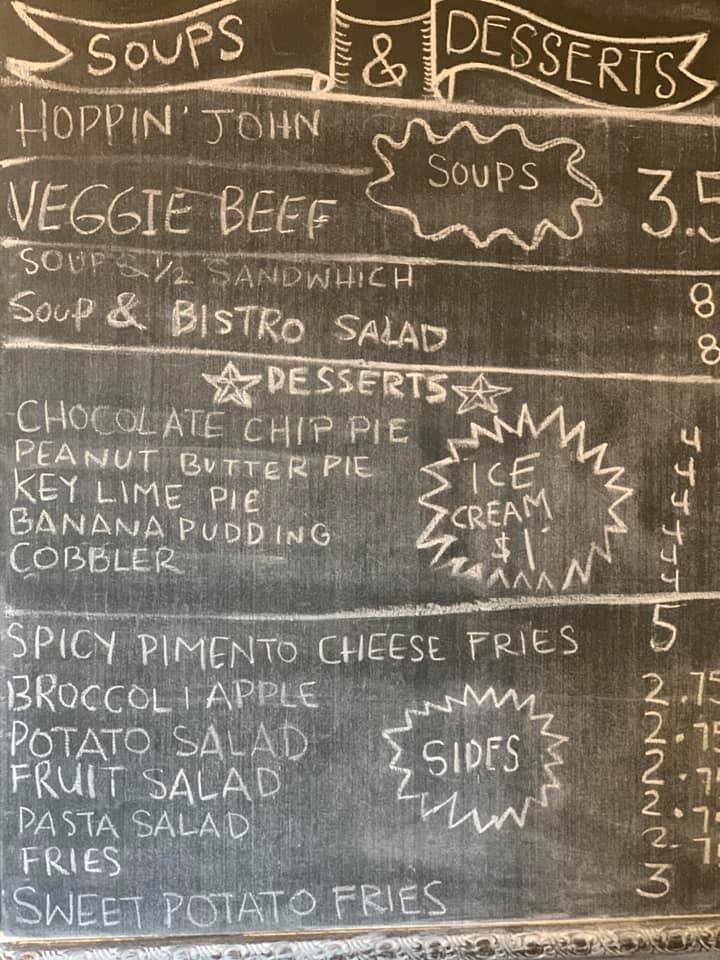 SOUPS & DESSERTS
HOPPIN' JOHN
SOUPS
VEGGIE BEEF 3.5
SOUP & 1/2 SANDWHICH 8
SOUP & BISTRO SALAD 8
DESSERTS
CHOCOLATE CHIP PIE 4
PEANUT BUTTER PIE 4
KEY LIME PIE 4
BANANA PUDDING 4
COBBLER 4
ICE
CREAM
$1
SPICY PIMENTO CHEESE FRIES 5
BROCCOLI APPLE 2.75
POTATO SALAD 2.75
FRUIT SALAD 2.7
PASTA SALAD 2.7
FRIES 2.7
SWEET POTATO FRIES 3
SIDES